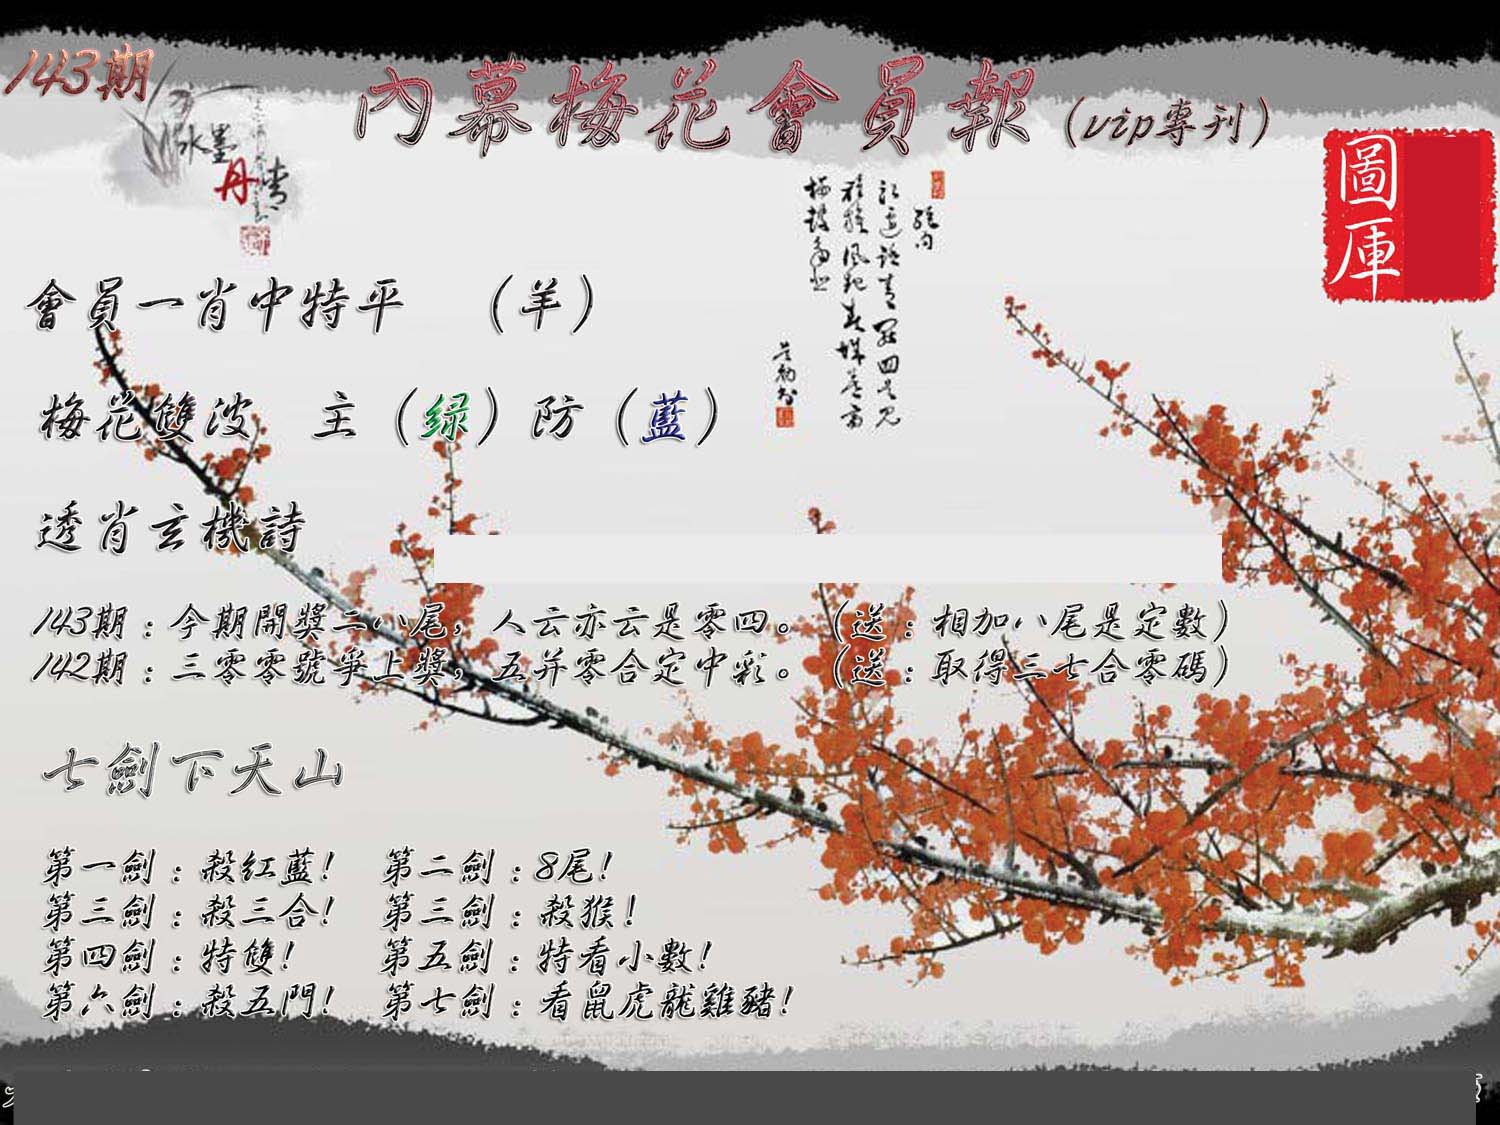 143期
內幕梅花會員報(vip專刊)
水墨
丹青
圖庫
會員一肖中特平 (羊)
梅花雙波 主(绿)防(藍)
透肖玄機詩
143期:今期開獎二八尾,人云亦云是零四。(送:相加八尾是定數)
142期:三零零號爭上獎,五并零合定中彩。(送:取得三七合零碼)
七劍下天山
第一劍:殺紅藍! 第二劍:8尾!
第三劍:殺三合! 第三劍:殺猴!
第四劍:特雙! 第五劍:特看小數!
第六劍:殺五門! 第七劍:看鼠虎龍雞豬!